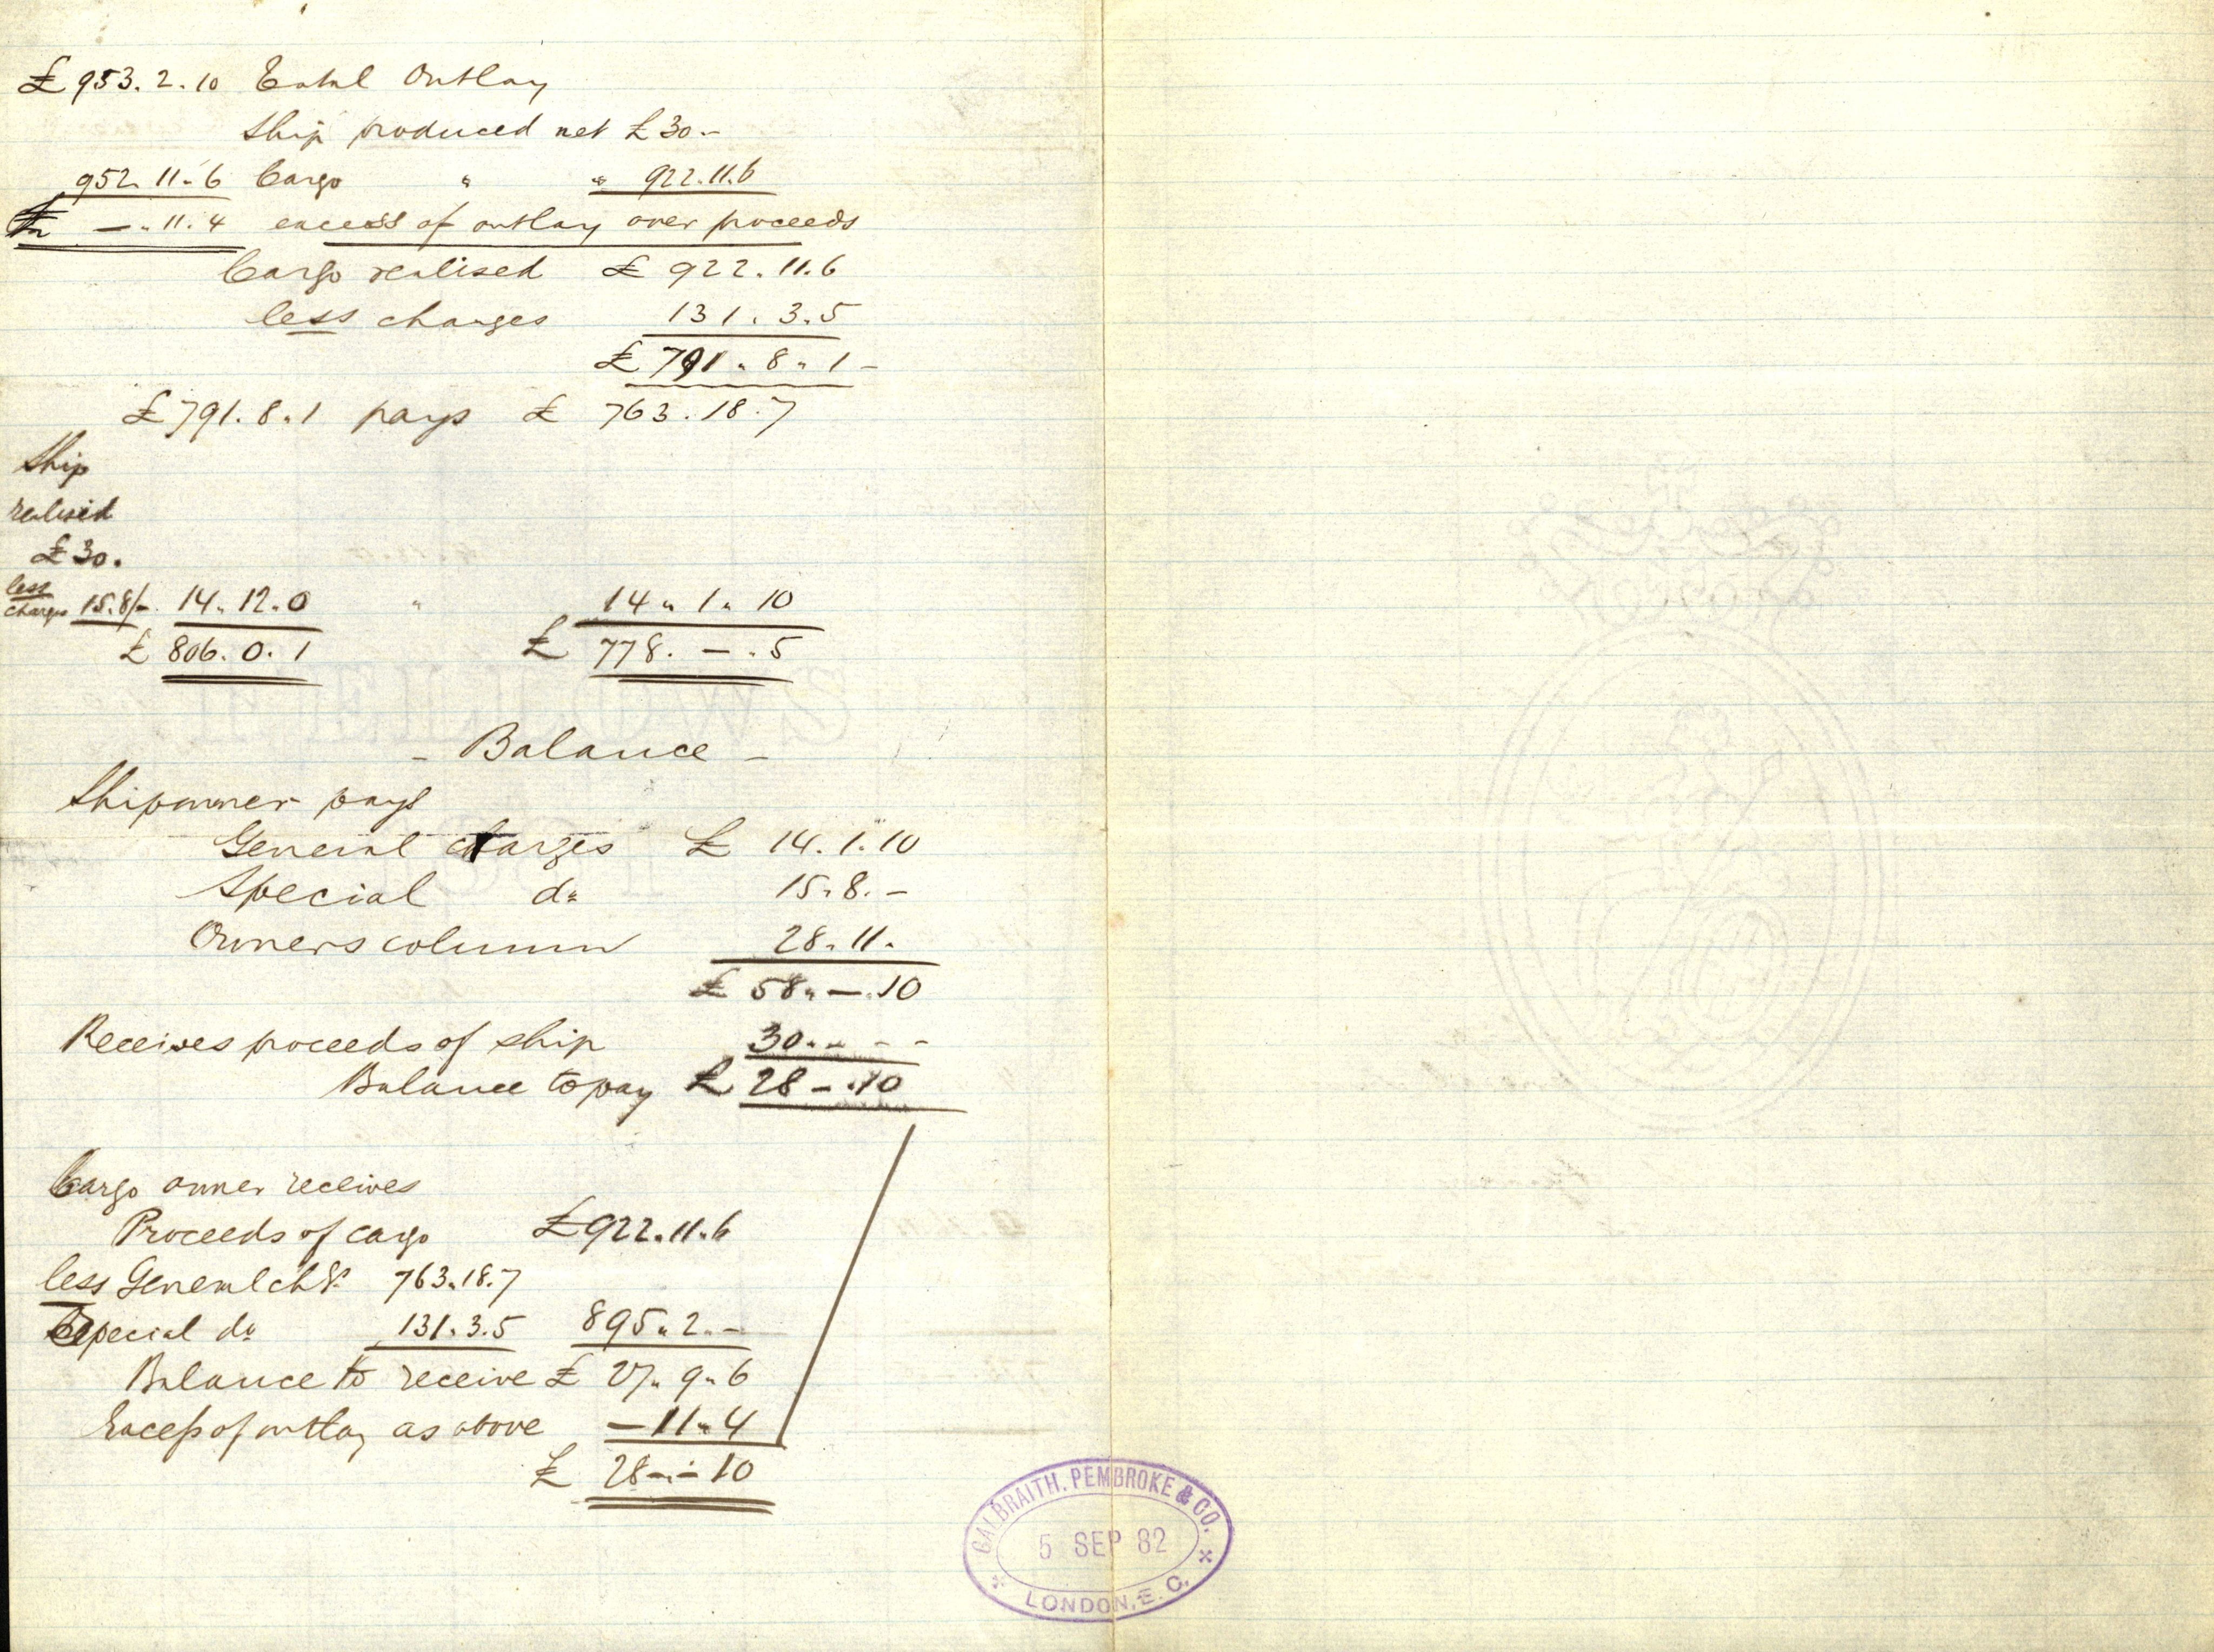 £953.2.10 Total Outlay
Ship produced net £30.-
952.11.6 Cargo " " 922.11.6
£ -.11.4 excess of outlay over proceeds
Cargo realised £ 922.11.6
less charges 131.3.5
£ 791.8.1-
£791.8.1 pays £ 763.18.7
Ship
realised
£30.
less
charges 15.8/- 14.12.0 " 14.1.10
£ 806.0.1 £ 778.-.5
- Balance -
Shipowner pays
General charges £ 14.1.10
Special do 15.8.-
Owners column 28.11.
£ 58.-.10
Receives proceeds of ship 30.- - -
Balance to pay £ 28-.10
Cargo owner receives
Proceeds of cargo £922.11.6
less General chgs 763.18.7
Special do 131.3.5 895.2.-
Balance to receive £ 27.9.6
Excess of outlay as above -11.4
£ 28-.-10
GALBRAITH, PEMBROKE & CO.
5 SEP 82
LONDON, E.C.